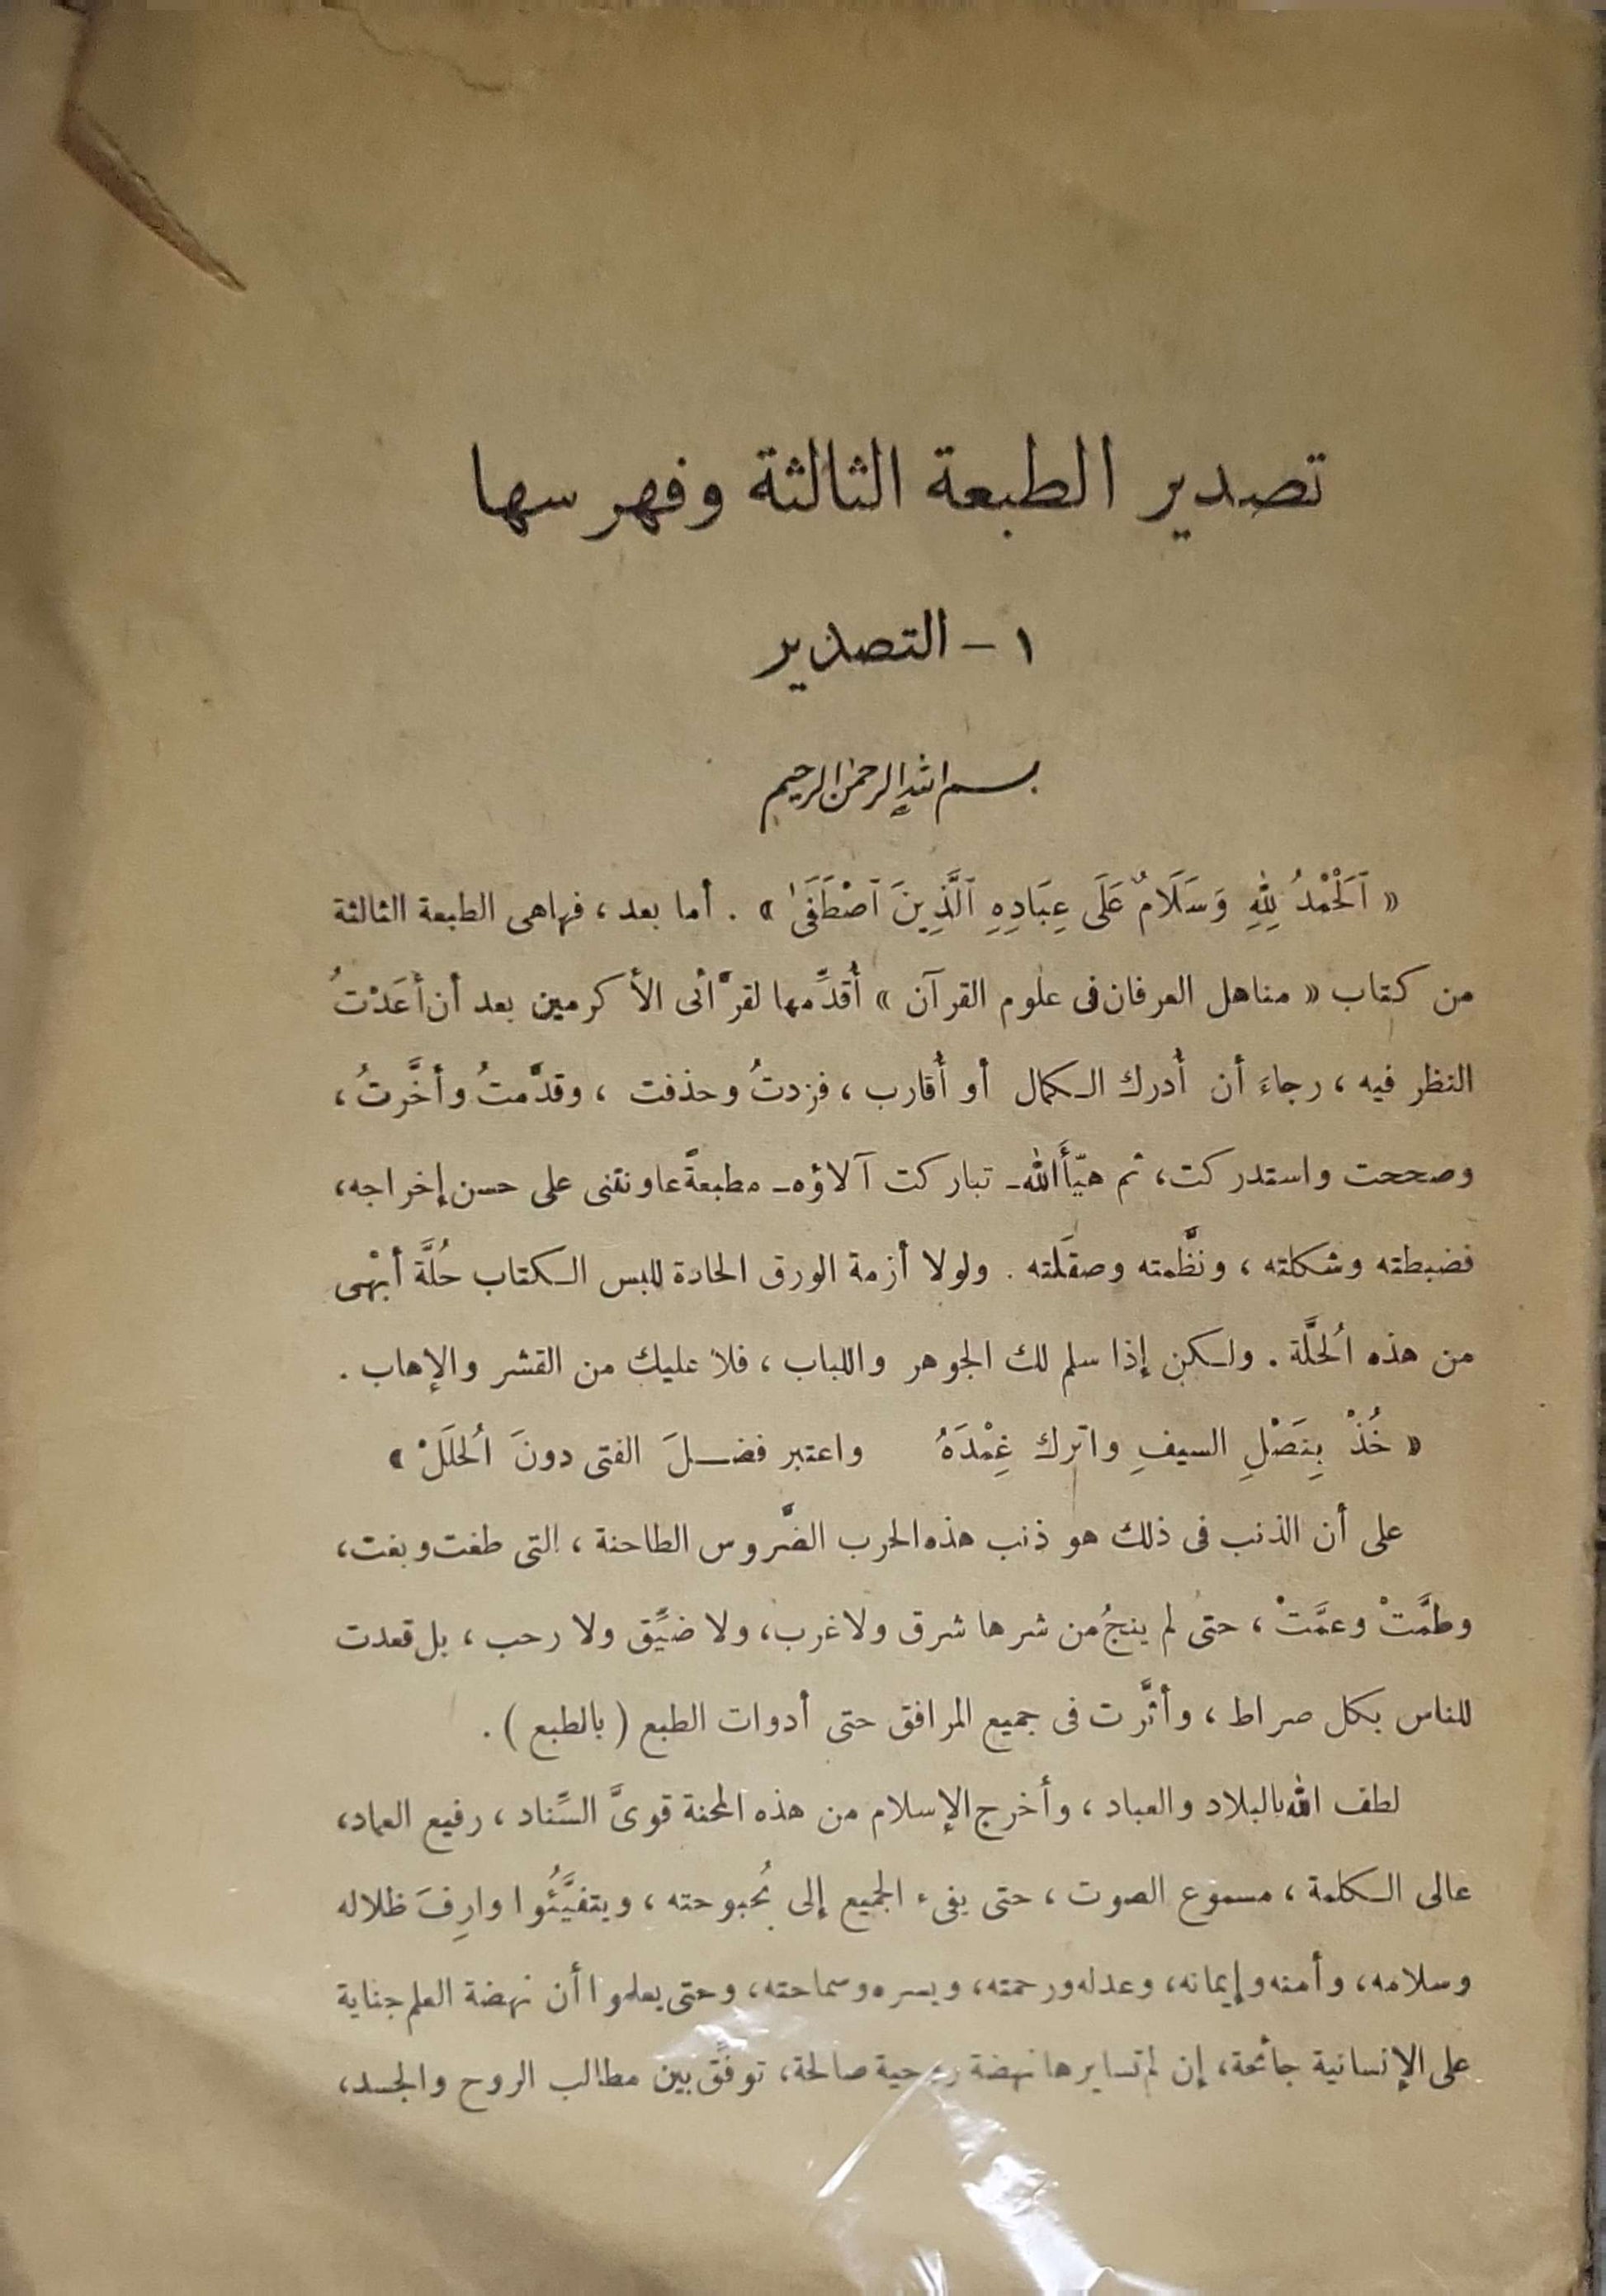 تصدير الطبعة الثالثة وفهرسها
١ - التصدير
بسم الله الرحمن الرحيم
« ٱلْحَمْدُ لِلّٰهِ وَسَلَامٌ عَلَى عِبَادِهِ ٱلَّذِينَ ٱصْطَفَىٰ » . أما بعد ، فهاهى الطبعة الثالثة
من كتاب « مناهل العرفان فى علوم القرآن » أُقدِّمها لقرَّائى الأكرمين بعد أن أعَدْتُ
النظر فيه ، رجاءَ أن أُدرك الكمال أو أُقارب ، فزدتُ وحذفت ، وقدَّمتُ وأخَّرتُ ،
وصححت واستدركت ، ثم هيّأَ الله - تباركت آلاؤه - مطبعةً عاونتنى على حسن إخراجه ،
فضبطته وشكلته ، ونظَّمته وصقَلته . ولولا أزمة الورق الحادة للبس الكتاب حُلَّة أبْهى
من هذه الُحلَّة . ولكن إذا سلم لك الجوهر واللباب ، فلا عليك من القشر والإهاب .
« خُذْ بِنَصْلِ السيفِ واترك غِمْدَهُ واعتبر فضلَ الفتى دونَ الُحلَلْ »
على أن الذنب فى ذلك هو ذنب هذه الحرب الضَّروس الطاحنة ، التى طغت وبغت ،
وطمَّتْ وعمَّتْ ، حتى لم ينجُ من شرها شرق ولا غرب ، ولا ضيِّق ولا رحب ، بل قعدت
للناس بكل صراط ، وأثَّرت فى جميع المرافق حتى أدوات الطبع ( بالطبع ) .
لطف الله بالبلاد والعباد ، وأخرج الإسلام من هذه المحنة قوىَّ السِّناد ، رفيع العماد ،
عالى الكلمة ، مسموع الصوت ، حتى يفىء الجميع إلى بُحبوحته ، ويتفيَّئُوا وارِفَ ظلاله
وسلامه ، وأمنه وإيمانه ، وعدله ورحمته ، ويسره وسماحته ، وحتى يعلموا أن نهضة العلم جناية
على الإنسانية جائحة ، إن لم تسايرها نهضة روحية صالحة ، توفِّق بين مطالب الروح والجسد ،